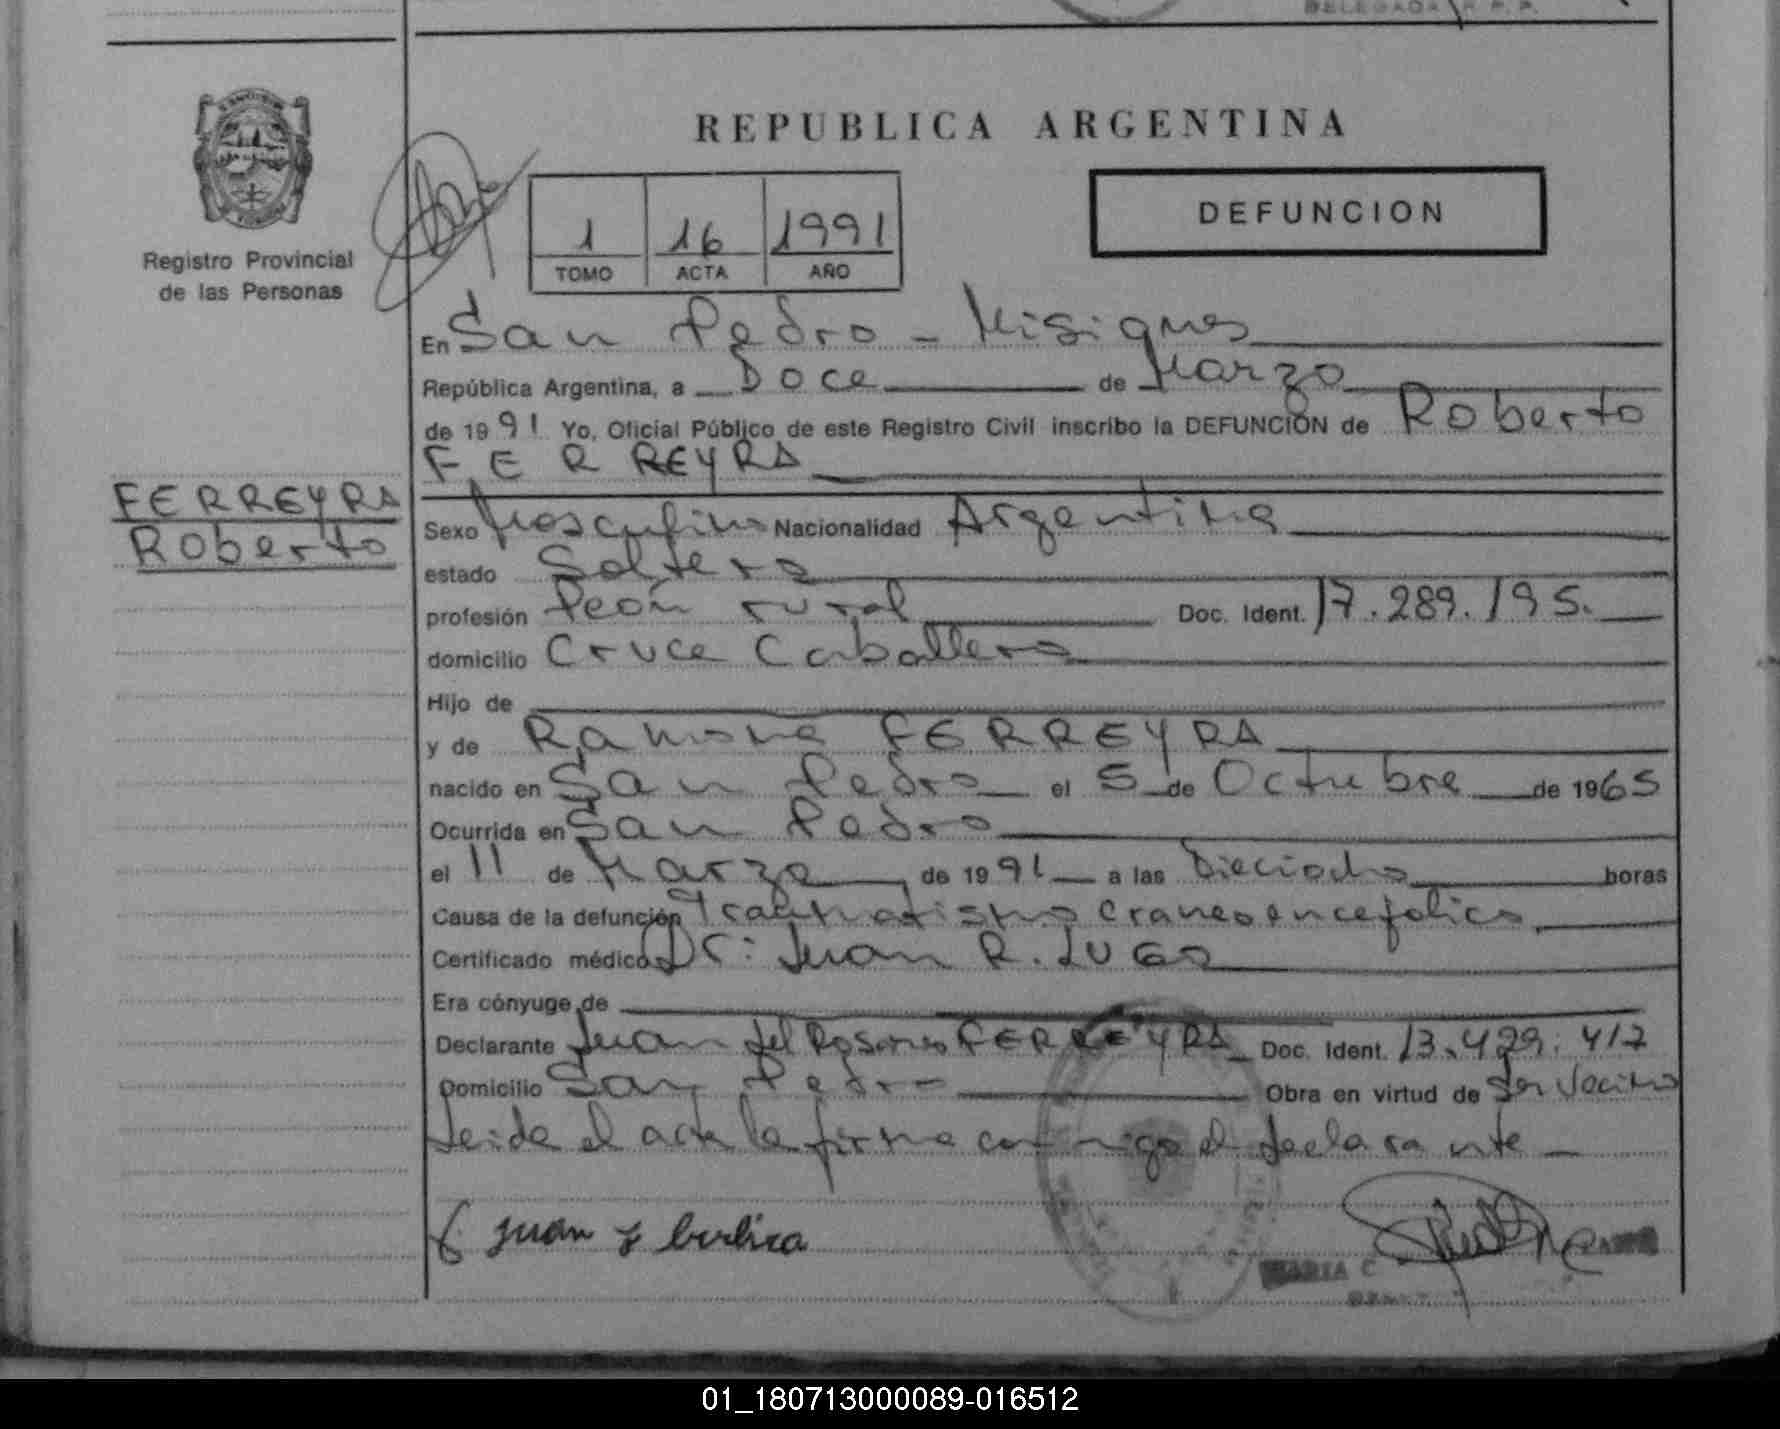 DELEGADA R.P.P.
REPUBLICA ARGENTINA
DEFUNCION
1 16 1991
TOMO ACTA AÑO
Registro Provincial
de las Personas
En San Pedro - Misiones
República Argentina, a Doce de Marzo
de 1991 Yo, Oficial Público de este Registro Civil inscribo la DEFUNCION de Roberto
FERREYRA
FERREYRA
Roberto
Sexo Masculino Nacionalidad Argentina
estado Soltero
profesión Peón rural Doc. Ident. 17.289.195.
domicilio Cruce Caballero
Hijo de
y de Ramona FERREYRA
nacido en San Pedro el 5 de Octubre de 1965
Ocurrida en San Pedro
el 11 de Marzo de 1991 a las Dieciocho horas
Causa de la defunción Traumatismo craneoencefalico
Certificado médico Dr: Juan R. LUGO
Era cónyuge de
Declarante Juan del Rosario FERREYRA Doc. Ident. 13.429.417
Domicilio San Pedro Obra en virtud de Ser Vecino
Leida el acta la firma conmigo el declarante
Juan
MARIA C
01_180713000089-016512